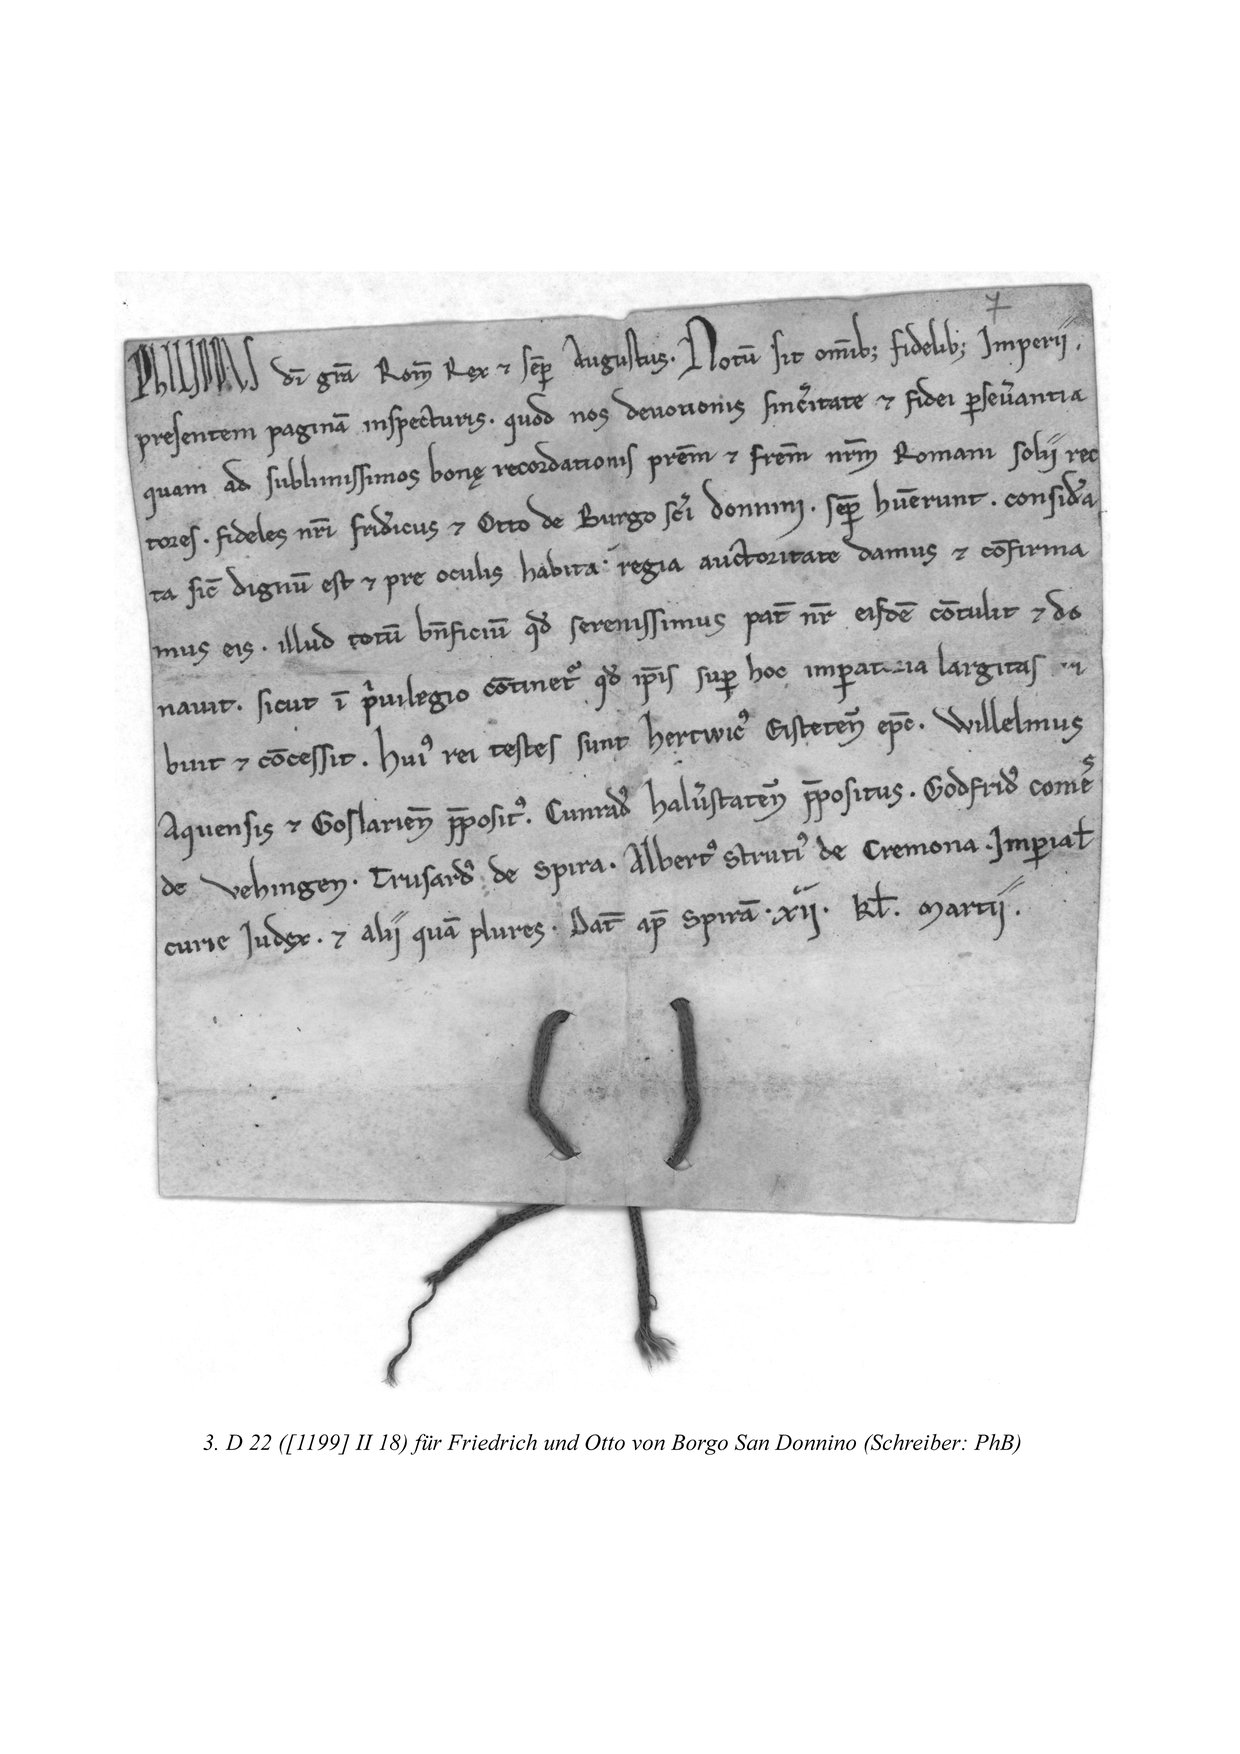 7
PHILIPPUS dī grā Rom̄ Rex ⁊ sēp Augustus. Notū sit om̄ib; fidelib; Imperii.
presentem paginā inspecturis. quod nos deuotionis sinc̄itate ⁊ fidei ꝑseūantia
quam ad sublimissimos bonę recordationis prēm ⁊ frēm nrm̄ Romani solii rec
tores. fideles nrī frid̄icus ⁊ Otto de Burgo sc̄i donnini. sēp hūerunt. consid̄a
ta sic̄ dignū est ⁊ pre oculis habita. regia auctoritate damus ⁊ cōfirma
mus eis. illud totū bn̄ficiū qd̄ serenissimus pat̄ nr̄ eisdē cōtulit ⁊ do
nauit. sicut ī pͥuilegio cōtinet᷑ qd̄ ip̄is suꝑ hoc imꝑat largitas
buit ⁊ cōcessit. huiꝰ rei testes sunt hertwic̄ꝰ Eisteteñ ep̄c. Willelmus
Aquensis ⁊ Goslarieñ p̄positꝰ. Cunradꝰ halūstateñ p̄positus. Godfridꝰ comes
de vehingen. Trusardꝰ de Spira. Albertꝰ Strutiꝰ de Cremona. Imꝑial̄
curie Judex. ⁊ alii quā plures. Dat̄ ap̄ Spirā. xii. kl̄. martii.
3. D 22 ([1199] II 18) für Friedrich und Otto von Borgo San Donnino (Schreiber: PhB)